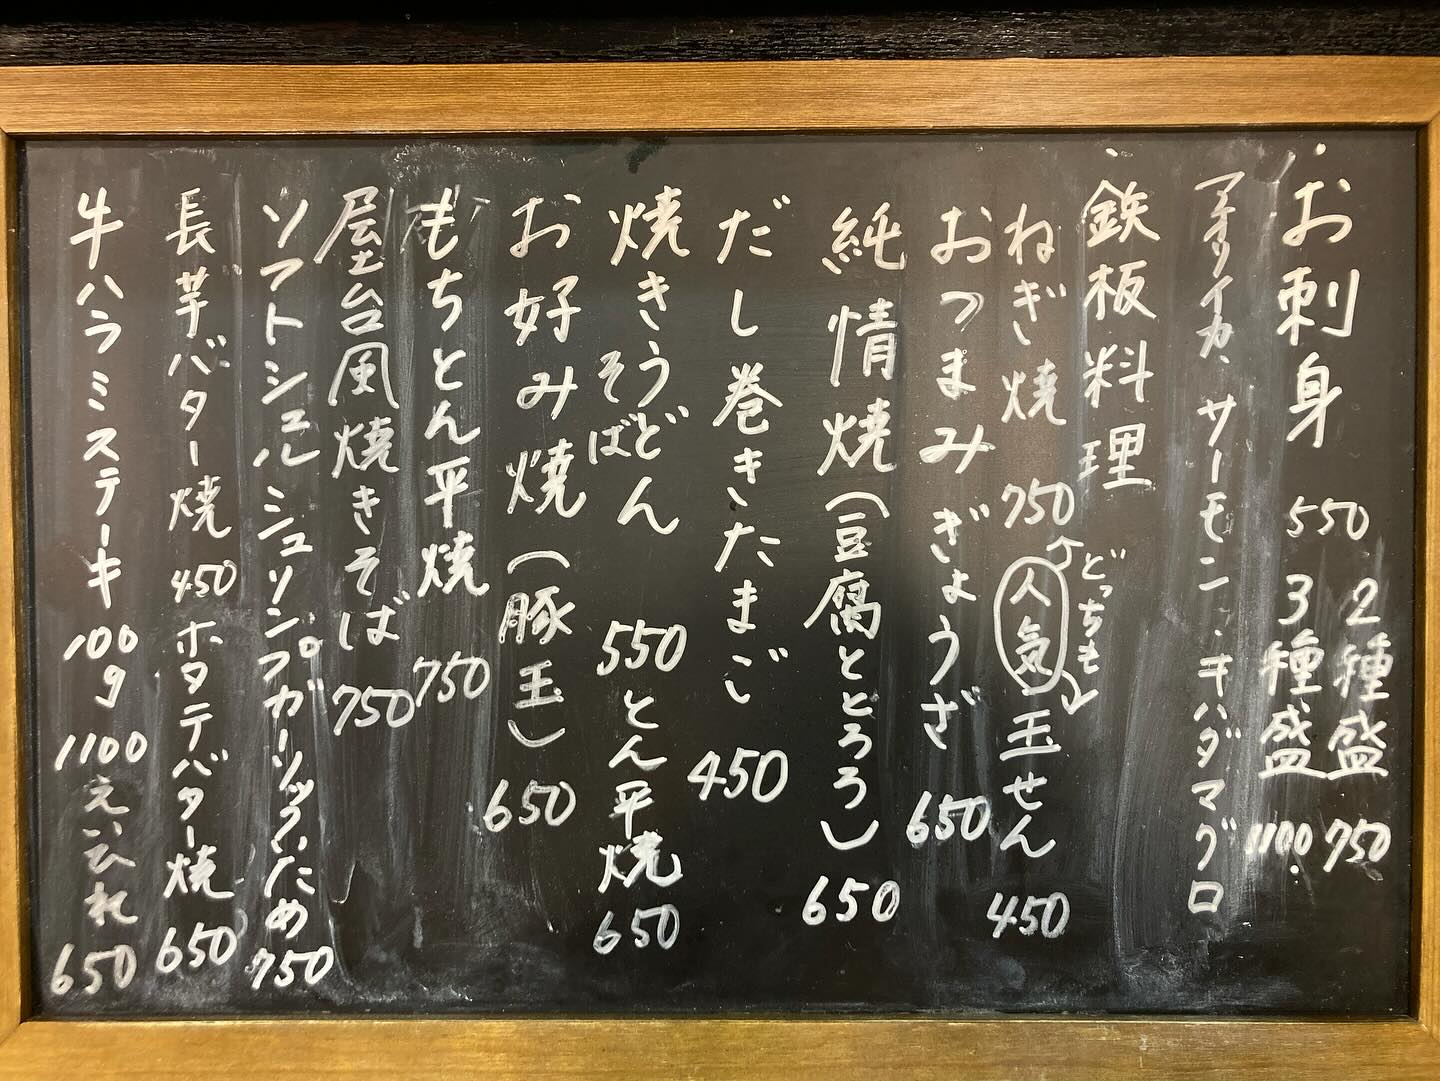 お刺身 550 2種盛 750
3種盛 1100
アオリイカ、サーモン、キハダマグロ
鉄板料理
ねぎ焼 750 人気 玉せん 450
どっちも
おつまみぎょうざ 650
純情焼(豆腐ととろろ) 650
だし巻きたまご 450
焼きうどん そば 550 とん平焼 650
お好み焼(豚玉) 650
もちとん平焼 750
屋台風焼きそば 750
ソフトシュルシュリンプガーリックいため 750
長芋バター焼 450 ホタテバター焼 650
牛ハラミステーキ 100g 1100 えいひれ 650